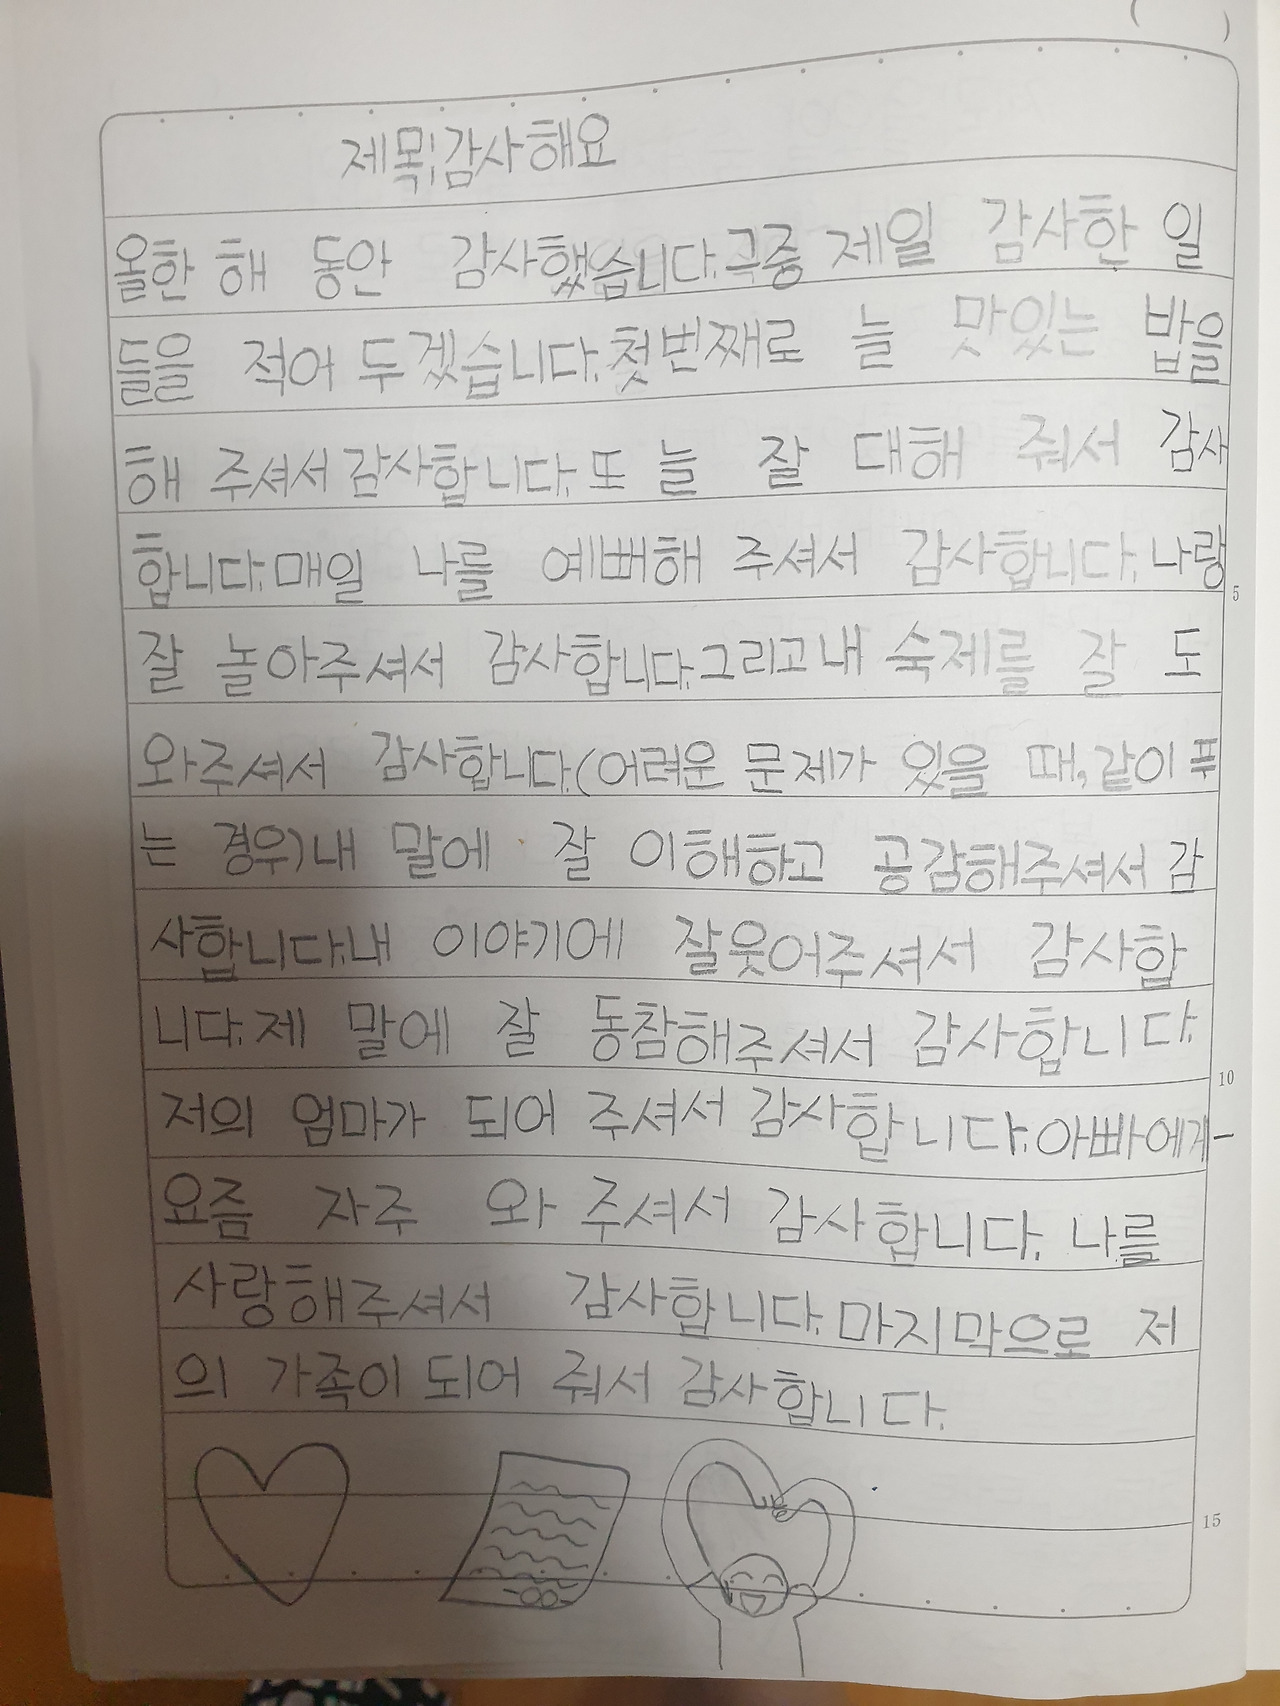 ( )
제목:감사해요
올한 해 동안 감사했습니다.극중 제일 감사한 일
들을 적어 두겠습니다.첫번째로 늘 맛있는 밥을
해 주셔서 감사합니다.또 늘 잘 대해 줘서 감사
합니다.매일 나를 예뻐해 주셔서 감사합니다.나랑
5
잘 놀아주셔서 감사합니다.그리고 내 숙제를 잘 도
와주셔서 감사합니다.(어려운 문제가 있을 때,같이 푸
는 경우)내 말에 잘 이해하고 공감해주셔서 감
사합니다.내 이야기에 잘웃어주셔서 감사합
니다.제 말에 잘 동참해주셔서 감사합니다.
10
저의 엄마가 되어 주셔서 감사합니다.아빠에게-
요즘 자주 와 주셔서 감사합니다. 나를
사랑해주셔서 감사합니다.마지막으로 저
의 가족이 되어 줘서 감사합니다.
15